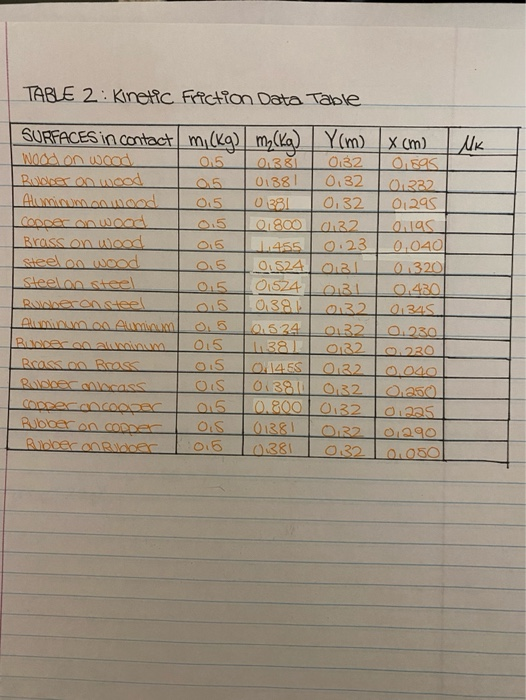 TABLE 2: Kinetic Friction Data Table
SURFACES in contact m₁(kg) m₂(kg) Y(m) X(m) μK
Wood on wood 0,5 0,381 0,32 0,595
Rubber on wood 0,5 0,381 0,32 0,232
Aluminum on wood 0,5 0,381 0,32 0,295
copper on wood 0,5 0,800 0,32 0,195
Brass on wood 0,5 1,455 0,23 0,040
steel on wood 0,5 0,524 0,31 0,320
steel on steel 0,5 0,524 0,31 0,430
Rubber on steel 0,5 0,381 0,32 0,345
Aluminum on Aluminum 0,5 0,524 0,32 0,230
Rubber on aluminum 0,5 1,381 0,32 0,230
Brass on Brass 0,5 0,1455 0,32 0,040
Rubber on brass 0,5 0,381 0,32 0,250
copper on copper 0,5 0.800 0,32 0,225
Rubber on copper 0,5 0,381 0,32 0,290
Rubber on Rubber 0,5 0,381 0,32 0,050